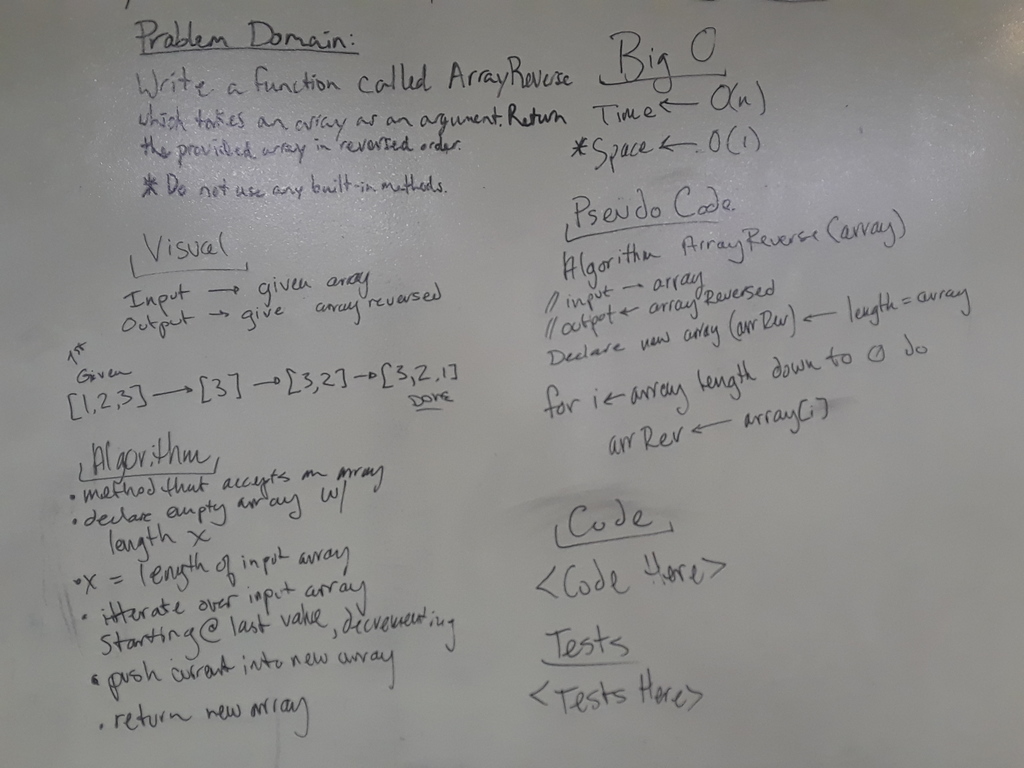 Problem Domain:
Write a function called ArrayReverse
which takes an array as an argument. Return
the provided array in reversed order.
* Do not use any built-in methods.
Visual
Input → given array
Output → give array reversed
1st
Given
[1,2,3] → [3] → [3,2] → [3,2,1]
DONE
Algorithm
• method that accepts an array
• declare empty array w/
length x
• x = length of input array
• itterate over input array
Starting @ last value, decrementing
• push current into new array
• return new array
Big O
Time ← O(n)
* Space ← O(1)
Pseudo Code
Algorithm ArrayReverse (array)
// input → array
// output ← arrayReversed
Declare new array (arrRev) ← length = array
for i ← array length down to 0 do
arrRev ← array[i]
Code
<Code Here>
Tests
<Tests Here>